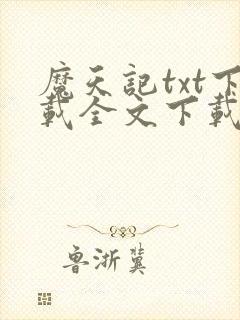 魔天記txt下
載全文下載
魯浙冀